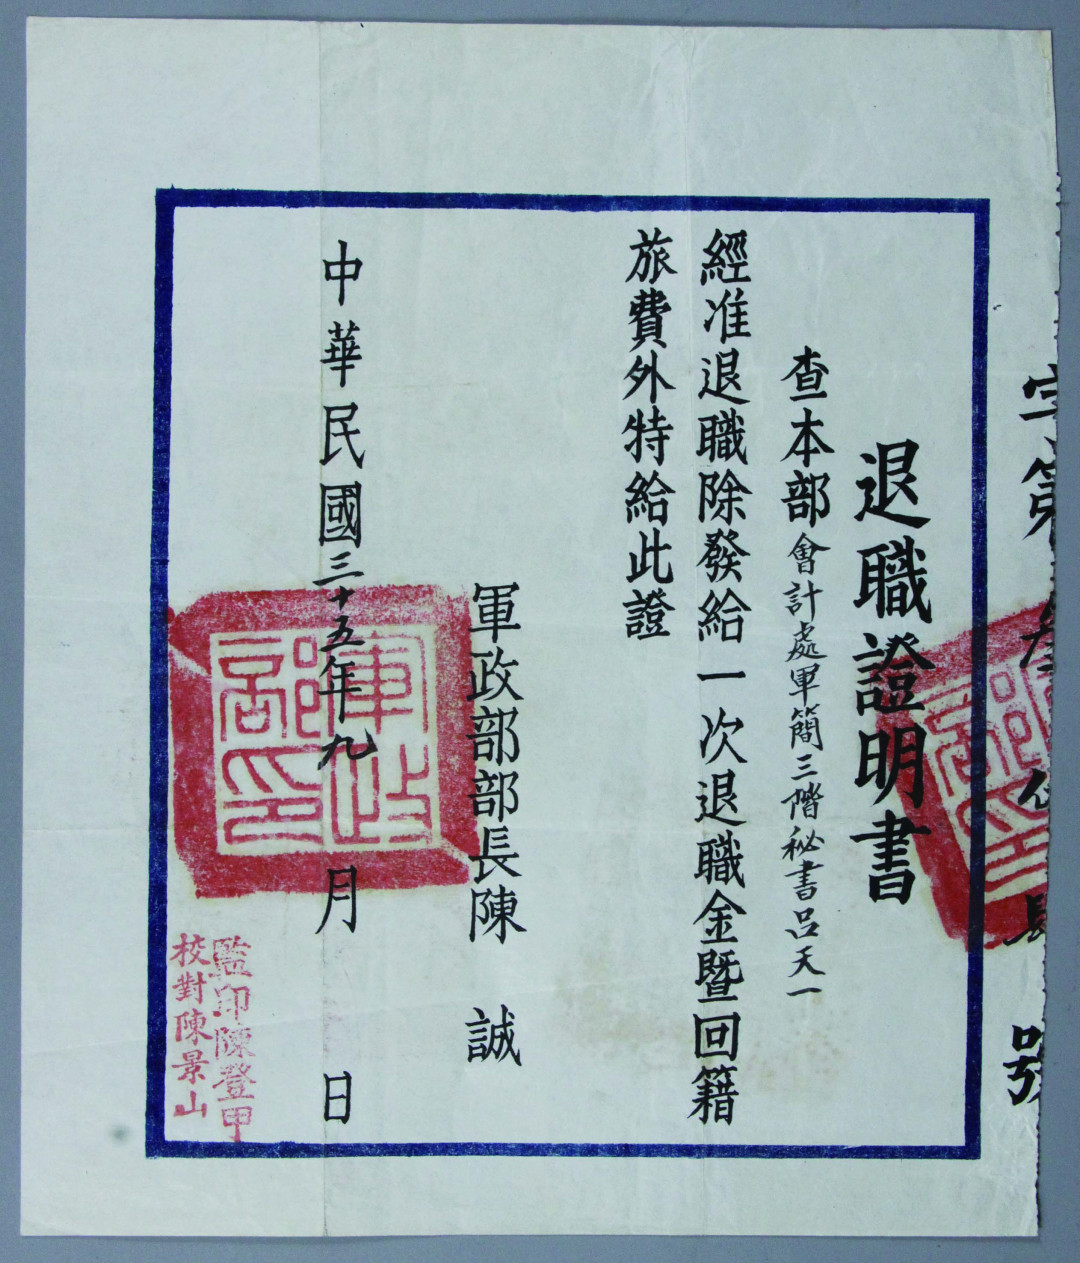 字第
號
退職證明書
查本部會計處軍簡三階秘書呂天一
經准退職除發給一次退職金暨回籍
旅費外特給此證
軍政部部長陳　誠
中華民國三十五年九月　日
軍政部印
監印陳登甲
校對陳景山